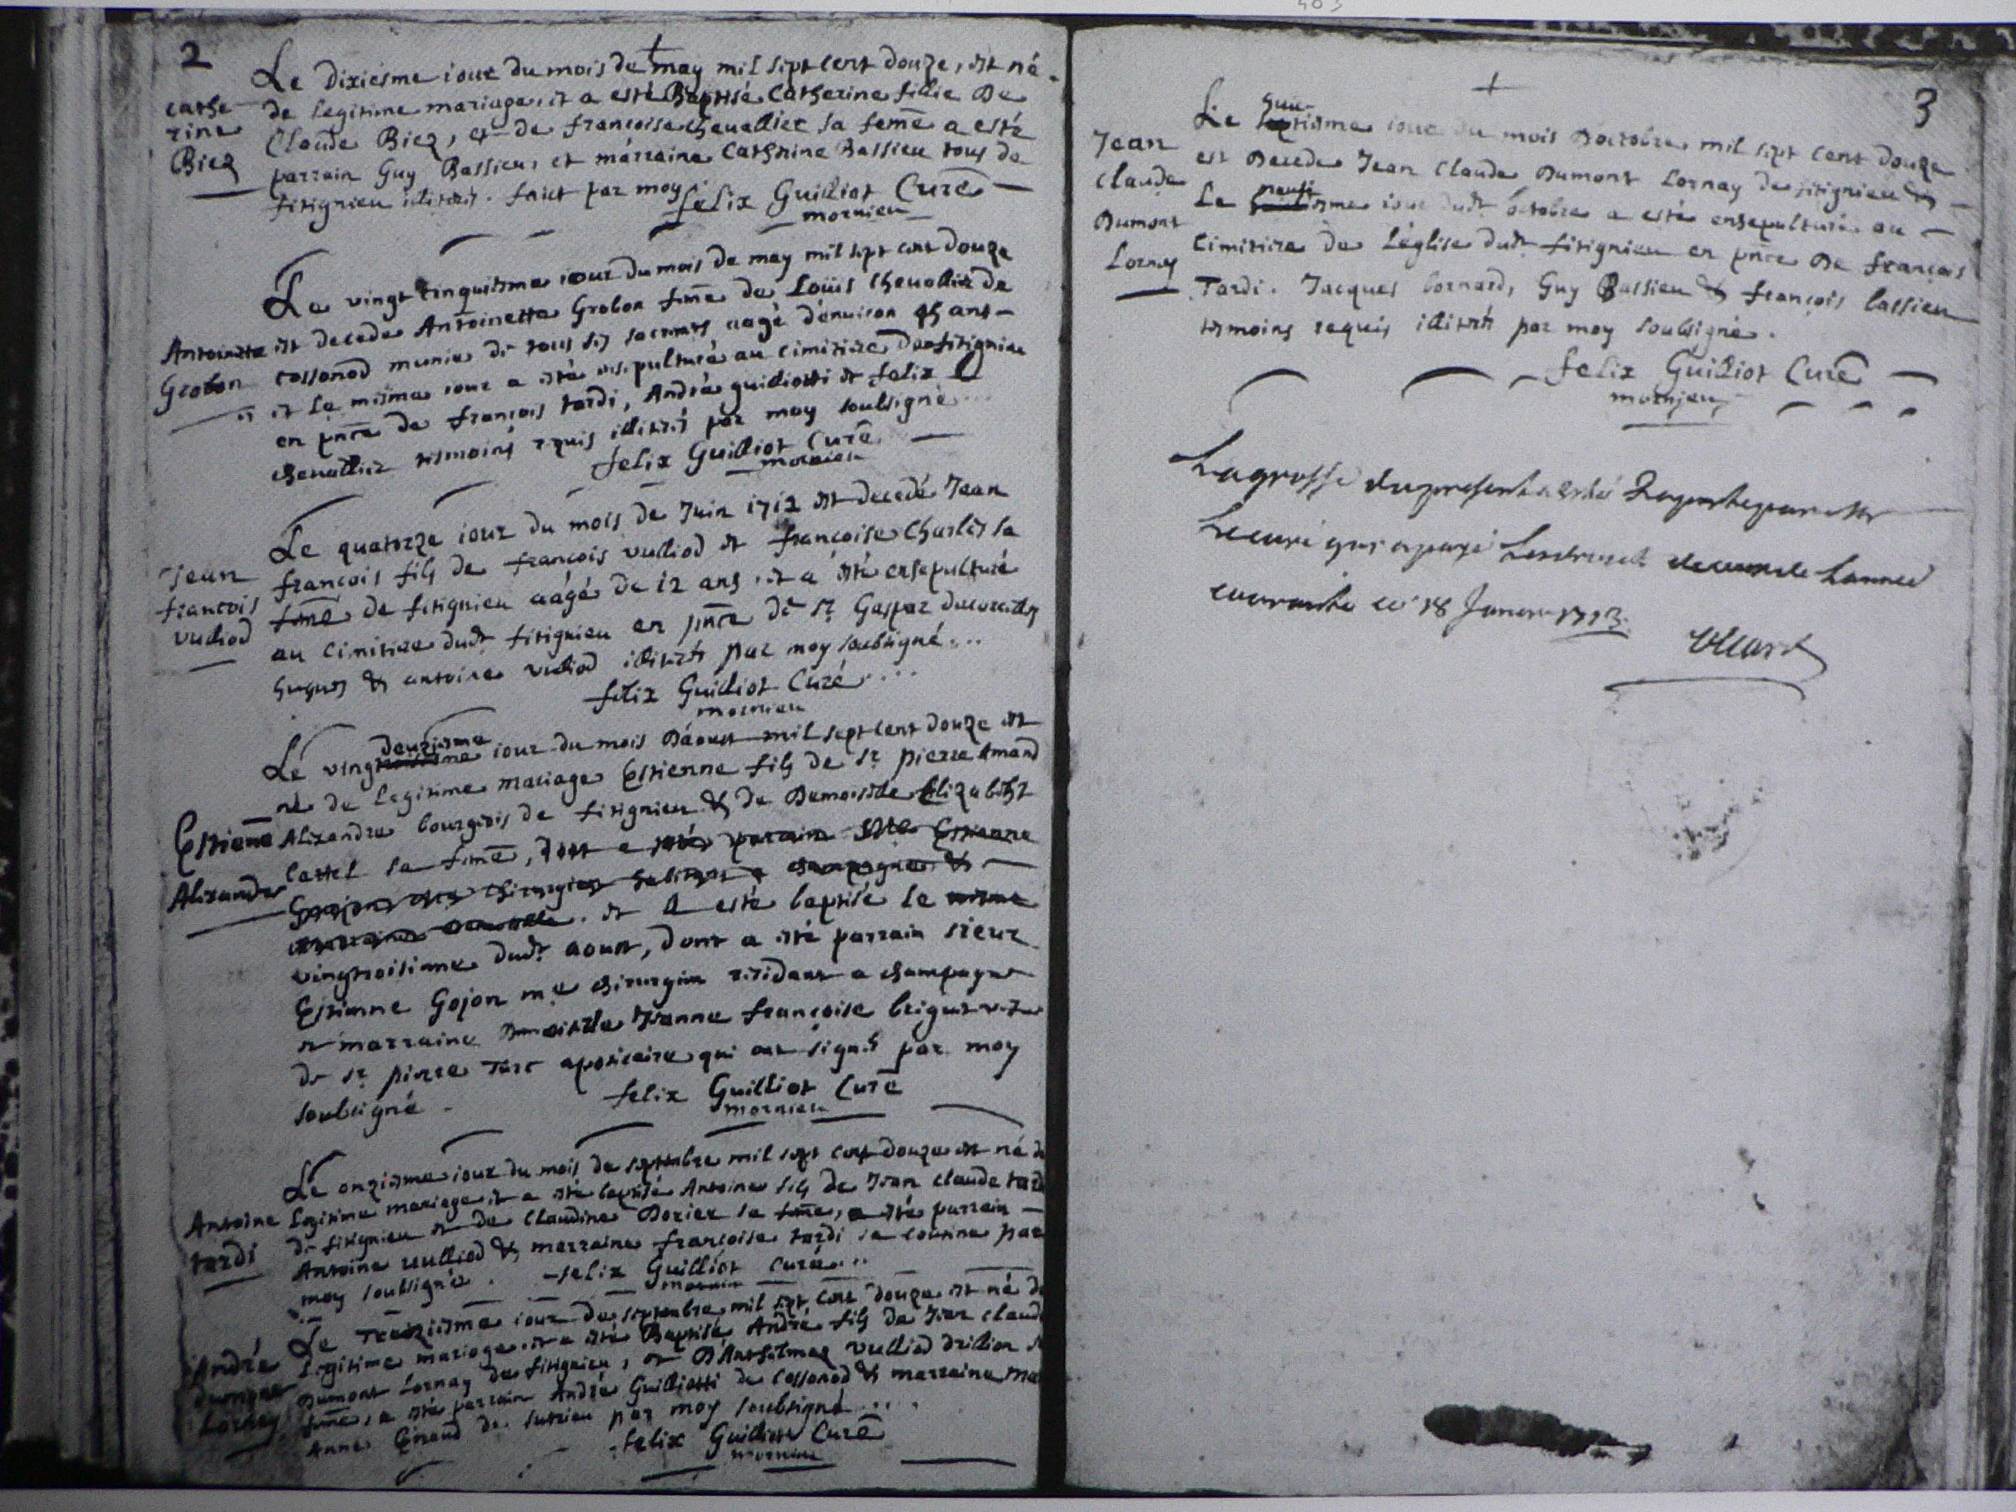 2
Le dixiesme iour du mois de may mil sept cent douze, est né
Cathe
rine
Biez
de legitime mariage, et a esté Baptisé Catherine fillie De
Claude Biez, et de françoise chevallier sa feme a esté
parrain Guy Bassieu, et marraine Cathrine Bassieu tous de
fitignieu illitrés. faict par moy
felix Guilliot Curé
mornieu
Le vingt cinquiesme iour du mois de may mil sept cent douze
Antoinette
Grobon
est decede Antoinette Grobon fme de Loüis chevallier de
cossonod munie de tous ses sacrmets aagé d'enuiron 45 ans
et le mesme iour a esté ensepulturé au cimitiere de fitignieu
en pnce de françois tardi, André guilliotti et felix
chevallier tesmoins requis illitrés par moy soubsigné
felix Guilliot Curé
mornieu
Le quatorze iour du mois de Juin 1712 est decedé Jean
Jean
francois
vulliod
francois fils de francois vulliod et francoise Charles sa
fme de fitignieu aagé de 12 ans, et a esté ensepulturé
au cimitiere dudt fitignieu en pnce de sr Gaspar
hugues & antoine vulliod illitrés par moy soubsigné...
felix Guilliot Curé....
mornieu
deuziesme
Le vingt iour du mois Daoust mil sept cent douze est
né de legitime mariage Estienne fils de sr pierre Amand
Estiene
Alixandre
Alixandre bourgeois de fitignieu & de Demoiselle Elizabeth
Cattel sa feme, dont a esté parrain Estienne
Gojon chirurgien a champagne &
marraine Demoiselle. et a esté baptisé le mesme
vingtroisiesme dudt aoust, dont a esté parrain sieur
Estienne Gojon me chirurgien residant a champagne
et marraine Demoiselle Jeanne françoise
de sr pierre apoticaire qui ont signés par moy
soubsigné
felix Guilliot Curé
mornieu
Le onziesme iour du mois de septembre mil sept cent douze est né de
Antoine
tardi
legitime mariage et a esté baptisé Antoine fils de Jean claude tardi
de fitignieu et de Claudine Dorier sa fme, a esté parrain
Antoine vulliod & marraine françoise tardi sa cousine par
moy soubsigné. felix Guilliot curé...
mornieu
Le treziesme iour de septembre mil sept cent douze est né de
André
dumont
Lornay
Legitime mariage et a esté Baptisé André fils de Jean claude
Dumont Lornay de fitignieu, et D'Anthelmaz vulliod drillion sa
fme, a esté parrain André Guilliotti de Cossonod & marraine
Anne de sutrieu par moy soubsigné....
felix Guilliot Curé
mornieu
3
huic
Le iour du mois Doctobre mil sept cent douze
Jean
claude
Dumont
Lornay
est Decede Jean Claude Dumont Lornay de fitignieu &
neufi
Le esme iour dudt octobre a esté ensepulturé au
Cimitiere de L'église dudt fitignieu en pnce De françois
Tardi. Jacques bornard, Guy Bassieu & françois bassieu
tesmoins requis illitrés par moy soubsigné.
felix Guilliot Curé
mornieu
La grosse du present a esté raportee par Mr
Le curé qui a payé de l'année
courante ce 18 Janvier 1713.